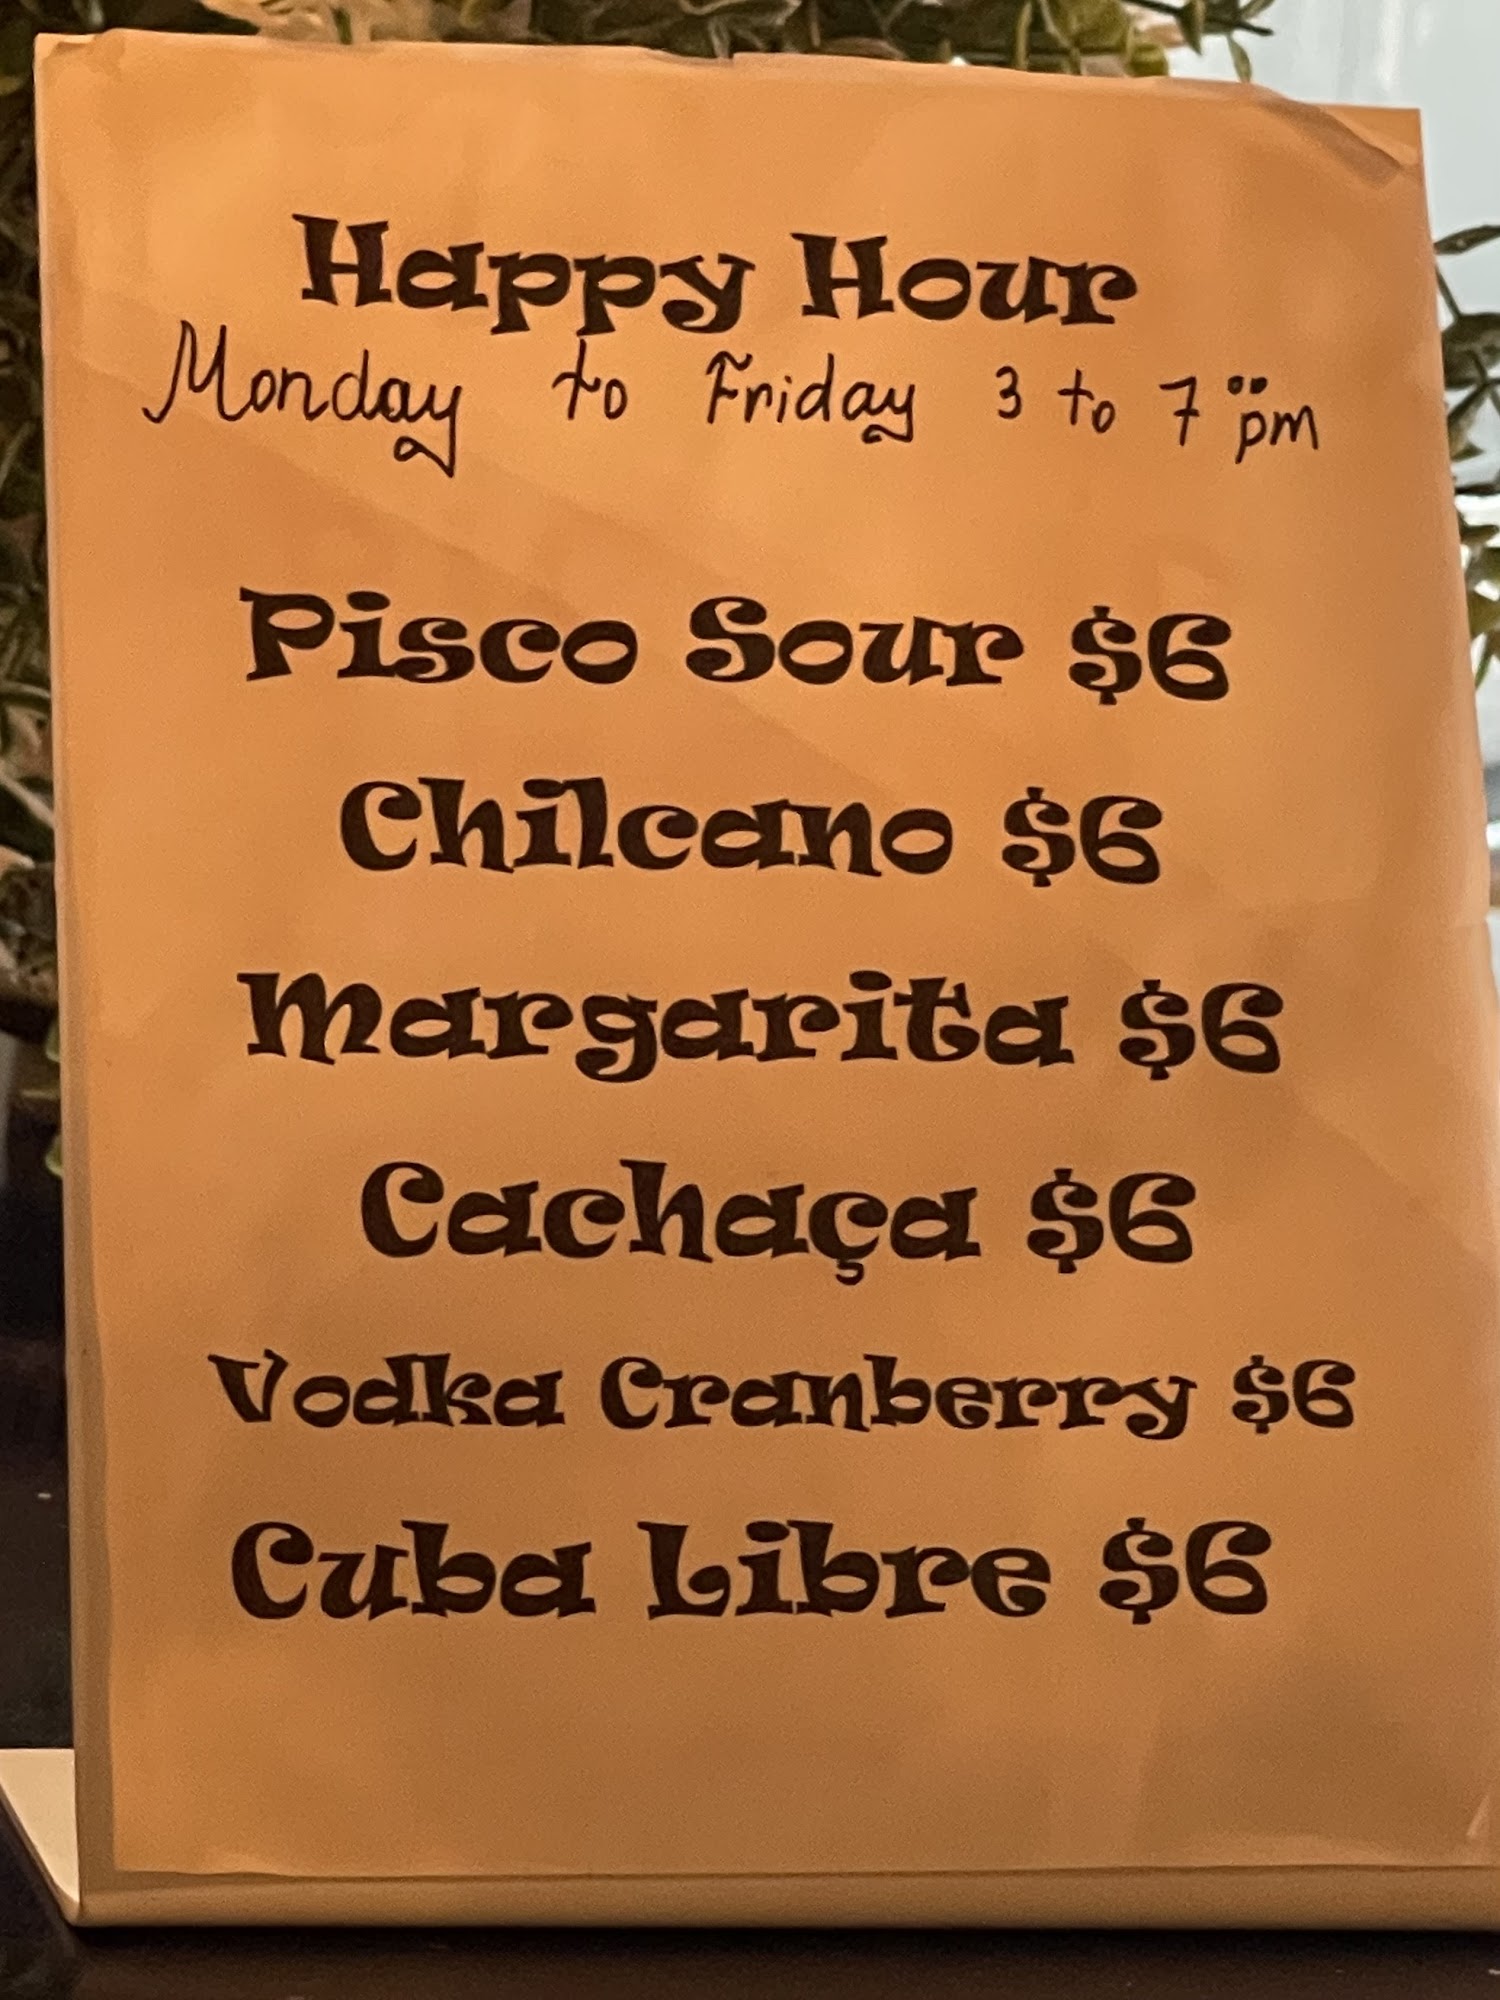 Happy Hour
Monday to Friday 3 to 7⁰⁰ pm
Pisco Sour $6
Chilcano $6
Margarita $6
Cachaça $6
Vodka Cranberry $6
Cuba Libre $6